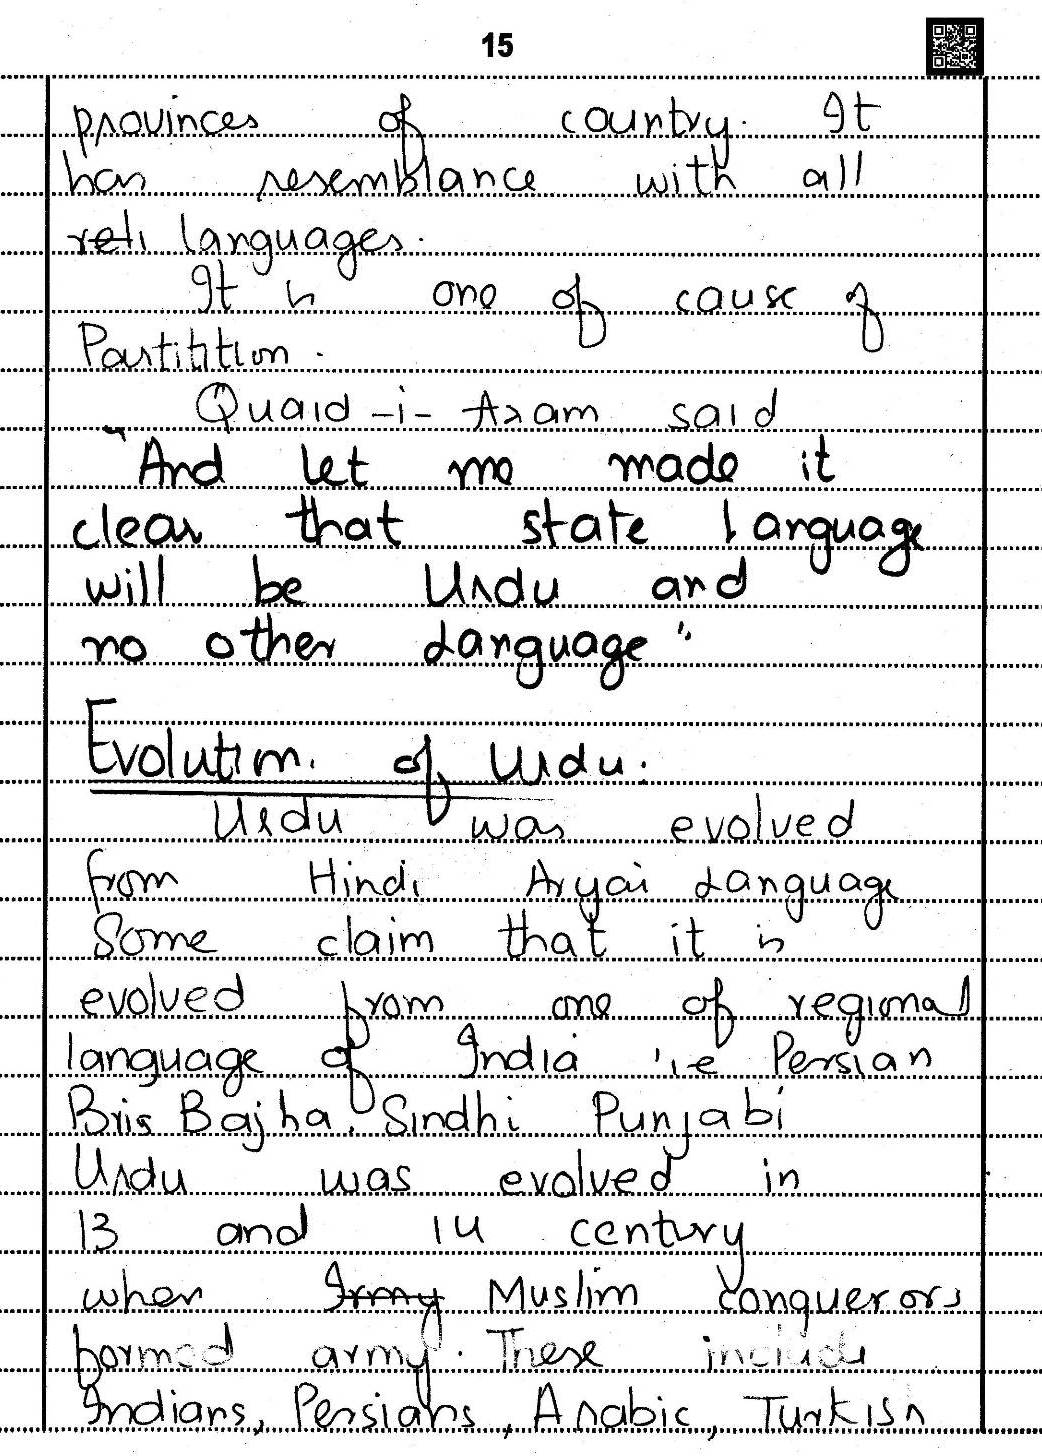 15
provinces of country. It
has resemblance with all
reli languages.
It is one of cause of
Partitition.
Quaid-i-Azam said
"And let me made it
clear that state language
will be Urdu and
no other Language".
Evolution of Urdu.
Urdu was evolved
from Hindi Aryai Language
Some claim that it is
evolved from one of regional
language of India i.e Persian
Bris Bajha, Sindhi Punjabi
Urdu was evolved in
13 and 14 century
when Irmy Muslim conquerors
formed army. These include
Indians, Persians, Arabic, Turkish